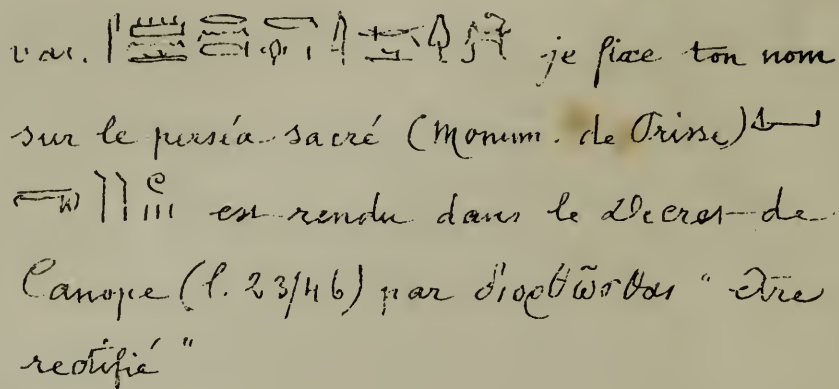 var. je fixe ton nom
sur le perséa sacré (Monum. de Prisse)
est rendu dans le Décret de
Canope (l. 23/46) par διορθῶσθαι " être
rectifié "